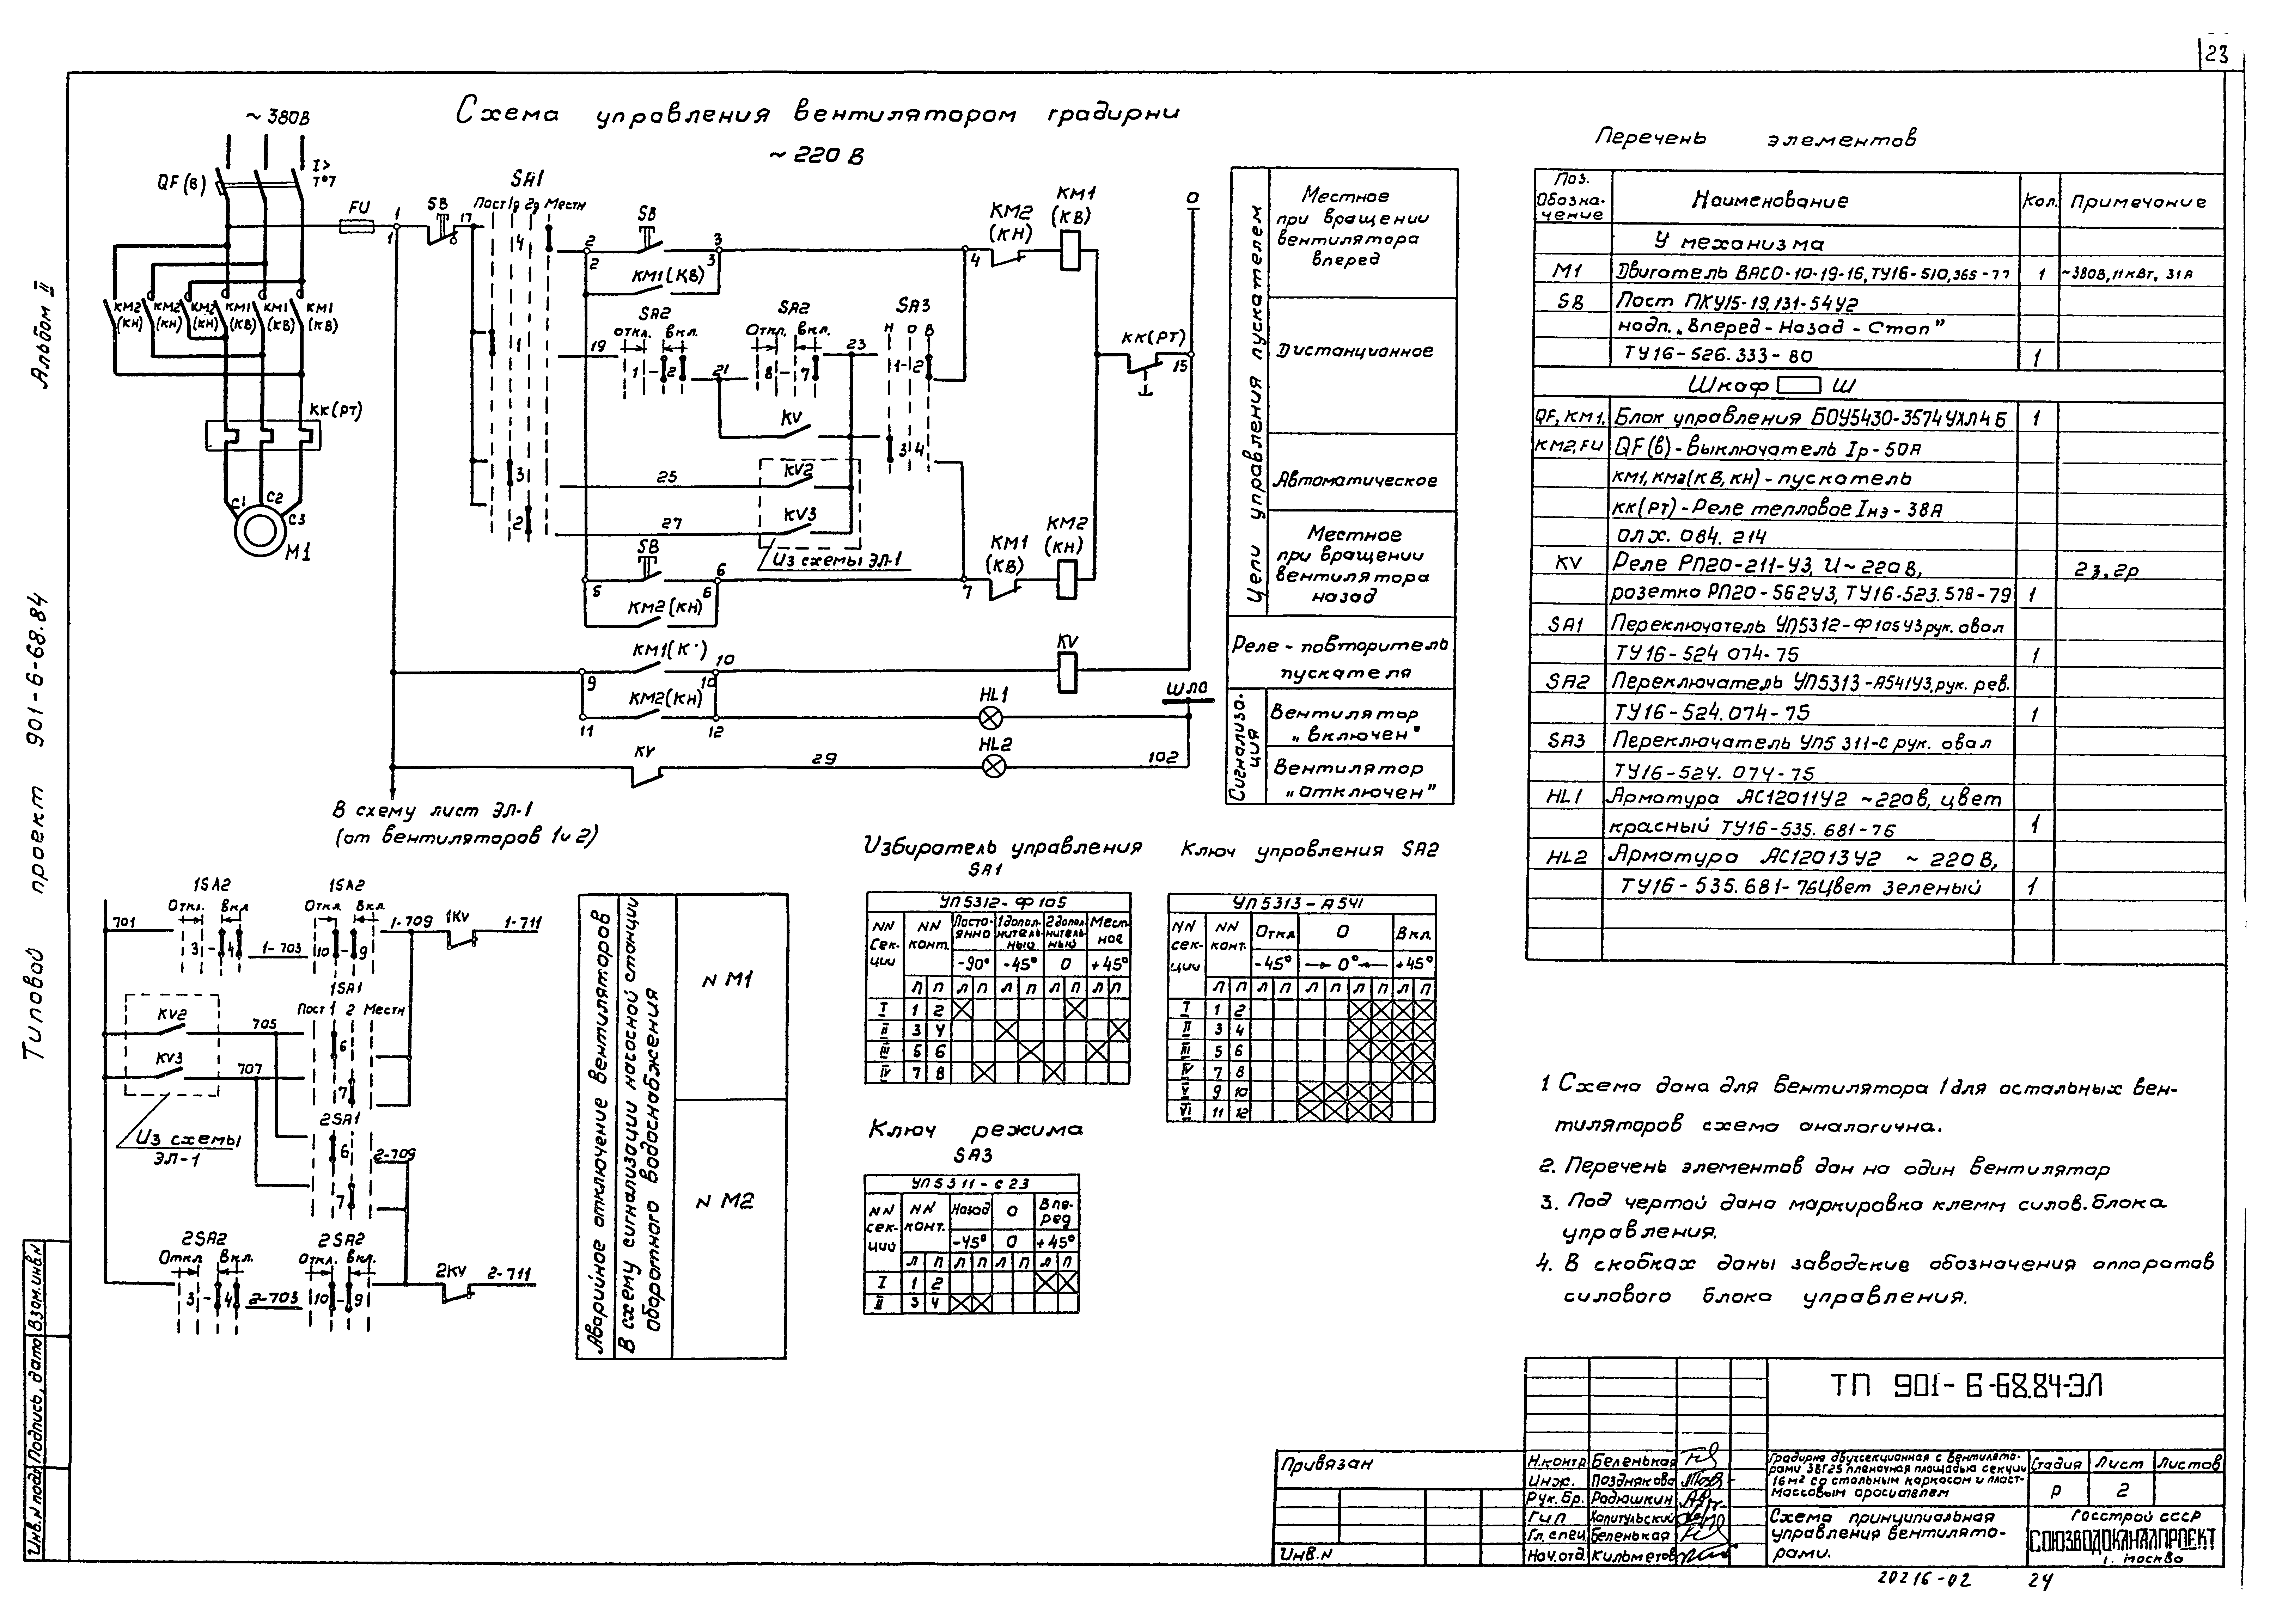 23
Альбом II
Типовой проект 901-6-68.84
Инв.N подл. Подпись, дата Взам.инв.N
Схема управления вентилятором градирни
~ 220 В
~ 380В
QF(В)
I>
FU
1
1
SB
17
SA1
Пост 1д 2д Местн
4
1
3
2
KM2 (КН)
KM2 (КН)
KM2 (КН)
KM1 (КВ)
KM1 (КВ)
KM1 (КВ)
КК(РТ)
C1
C2
C3
M1
2
2
SB
3
3
KM1(КВ)
4
KM2 (КН)
KM1 (КВ)
0
19
SA2
Откл. Вкл.
1 - 2
21
SA2
Откл. Вкл.
8 - 7
23
SA3
Н О В
1 - 2
3 4
KV
КК(РТ)
15
25
KV2
27
KV3
Из схемы ЭЛ-1
5
SB
6
6
KM2(КН)
7
KM1 (КВ)
KM2 (КН)
9
10
10
KV
11
KM2(КН)
12
HL1
ШЛО
KV
29
HL2
102
В схему лист ЭЛ-1
(от вентиляторов 1 и 2)
Цепи управления пускателем
Местное при вращении вентилятора вперед
Дистанционное
Автоматическое
Местное при вращении вентилятора назад
Реле - повторитель пускателя
Сигнализация
Вентилятор „включен"
Вентилятор „отключен"
701
1SA2
Откл. Вкл
3 - 4
1-703
1SA2
Откл Вкл.
10 - 9
1-709
1KV
1-711
1SA1
Пост 1 2 Местн
KV2
705
6
KV3
707
7
Из схемы ЭЛ-1
2SA1
6
7
2-709
2SA2
Откл Вкл.
3 - 4
2-703
2SA2
Откл. Вкл.
10 - 9
2KV
2-711
Аварийное отключение вентиляторов
В схему сигнализации насосной станции
оборотного водоснабжения
N M1
N M2
Избиратель управления
SA1
УП5312-Ф105
NN секции
NN конт.
Постоянно
1 дополнительный
2 дополнительный
Местное
-90° -45° 0 +45°
Л П Л П Л П Л П Л П
I 1 2
II 3 4
III 5 6
IV 7 8
Ключ управления SA2
УП5313-А541
NN секции
NN конт.
Откл 0 Вкл.
-45° 0° +45°
Л П Л П Л П Л П Л П
I 1 2
II 3 4
III 5 6
IV 7 8
V 9 10
VI 11 12
Ключ режима
SA3
УП5311-С23
NN секций
NN конт.
Назад 0 Вперед
-45° 0 +45°
Л П Л П Л П Л П
I 1 2
II 3 4
Перечень элементов
Поз. Обозначение Наименование Кол. Примечание
У механизма
M1 Двигатель ВАСО-10-19-16, ТУ16-510,365-77 1 ~380В, 11кВт, 31А
SB Пост ПКУ15-19,131-54У2
надп. „Вперед-Назад-Стоп"
ТУ16-526.333-80 1
Шкаф Ш
QF, KM1, Блок управления БОУ5430-3574УХЛ4Б 1
KM2, FU QF(В)-Выключатель Iр-50А
KM1, KM2(КВ, КН)-пускатель
КК(РТ)-Реле тепловое Iнэ-38А
ОЛХ. 084. 214
KV Реле РП20-211-У3, U~220В, 2з, 2р
розетка РП20-562У3, ТУ16-523.578-79 1
SA1 Переключатель УП5312-Ф105У3 рук. овал
ТУ16-524 074-75 1
SA2 Переключатель УП5313-А541У3, рук. рев.
ТУ16-524.074-75 1
SA3 Переключатель УП5 311-С рук. овал
ТУ16-524. 074-75
HL1 Арматура АС12011У2 ~220В, цвет
красный ТУ16-535. 681-76 1
HL2 Арматура АС12013У2 ~ 220В,
ТУ16-535.681-76 Цвет зеленый 1
1 Схема дана для вентилятора 1 для остальных вен-
тиляторов схема аналогична.
2. Перечень элементов дан на один вентилятор
3. Под чертой дана маркировка клемм силов. блока
управления.
4. В скобках даны заводские обозначения аппаратов
силового блока управления.
ТП 901-6-68.84-ЭЛ
Привязан
Инв.N
Н.контр Беленькая
Инж. Позднякова
Рук.бр. Радюшкин
Гип Капитульский
Гл.спец Беленькая
Нач.отд. Кильметов
Градирня двухсекционная с вентилято-
рами 3ВГ25 пленочная площадью секции
16м² со стальным каркасом и пласт-
массовым оросителем
Стадия Лист Листов
Р 2
Схема принципиальная
управления вентилято-
рами.
Госстрой СССР
СОЮЗВОДОКАНАЛПРОЕКТ
г. Москва
20216-02 24